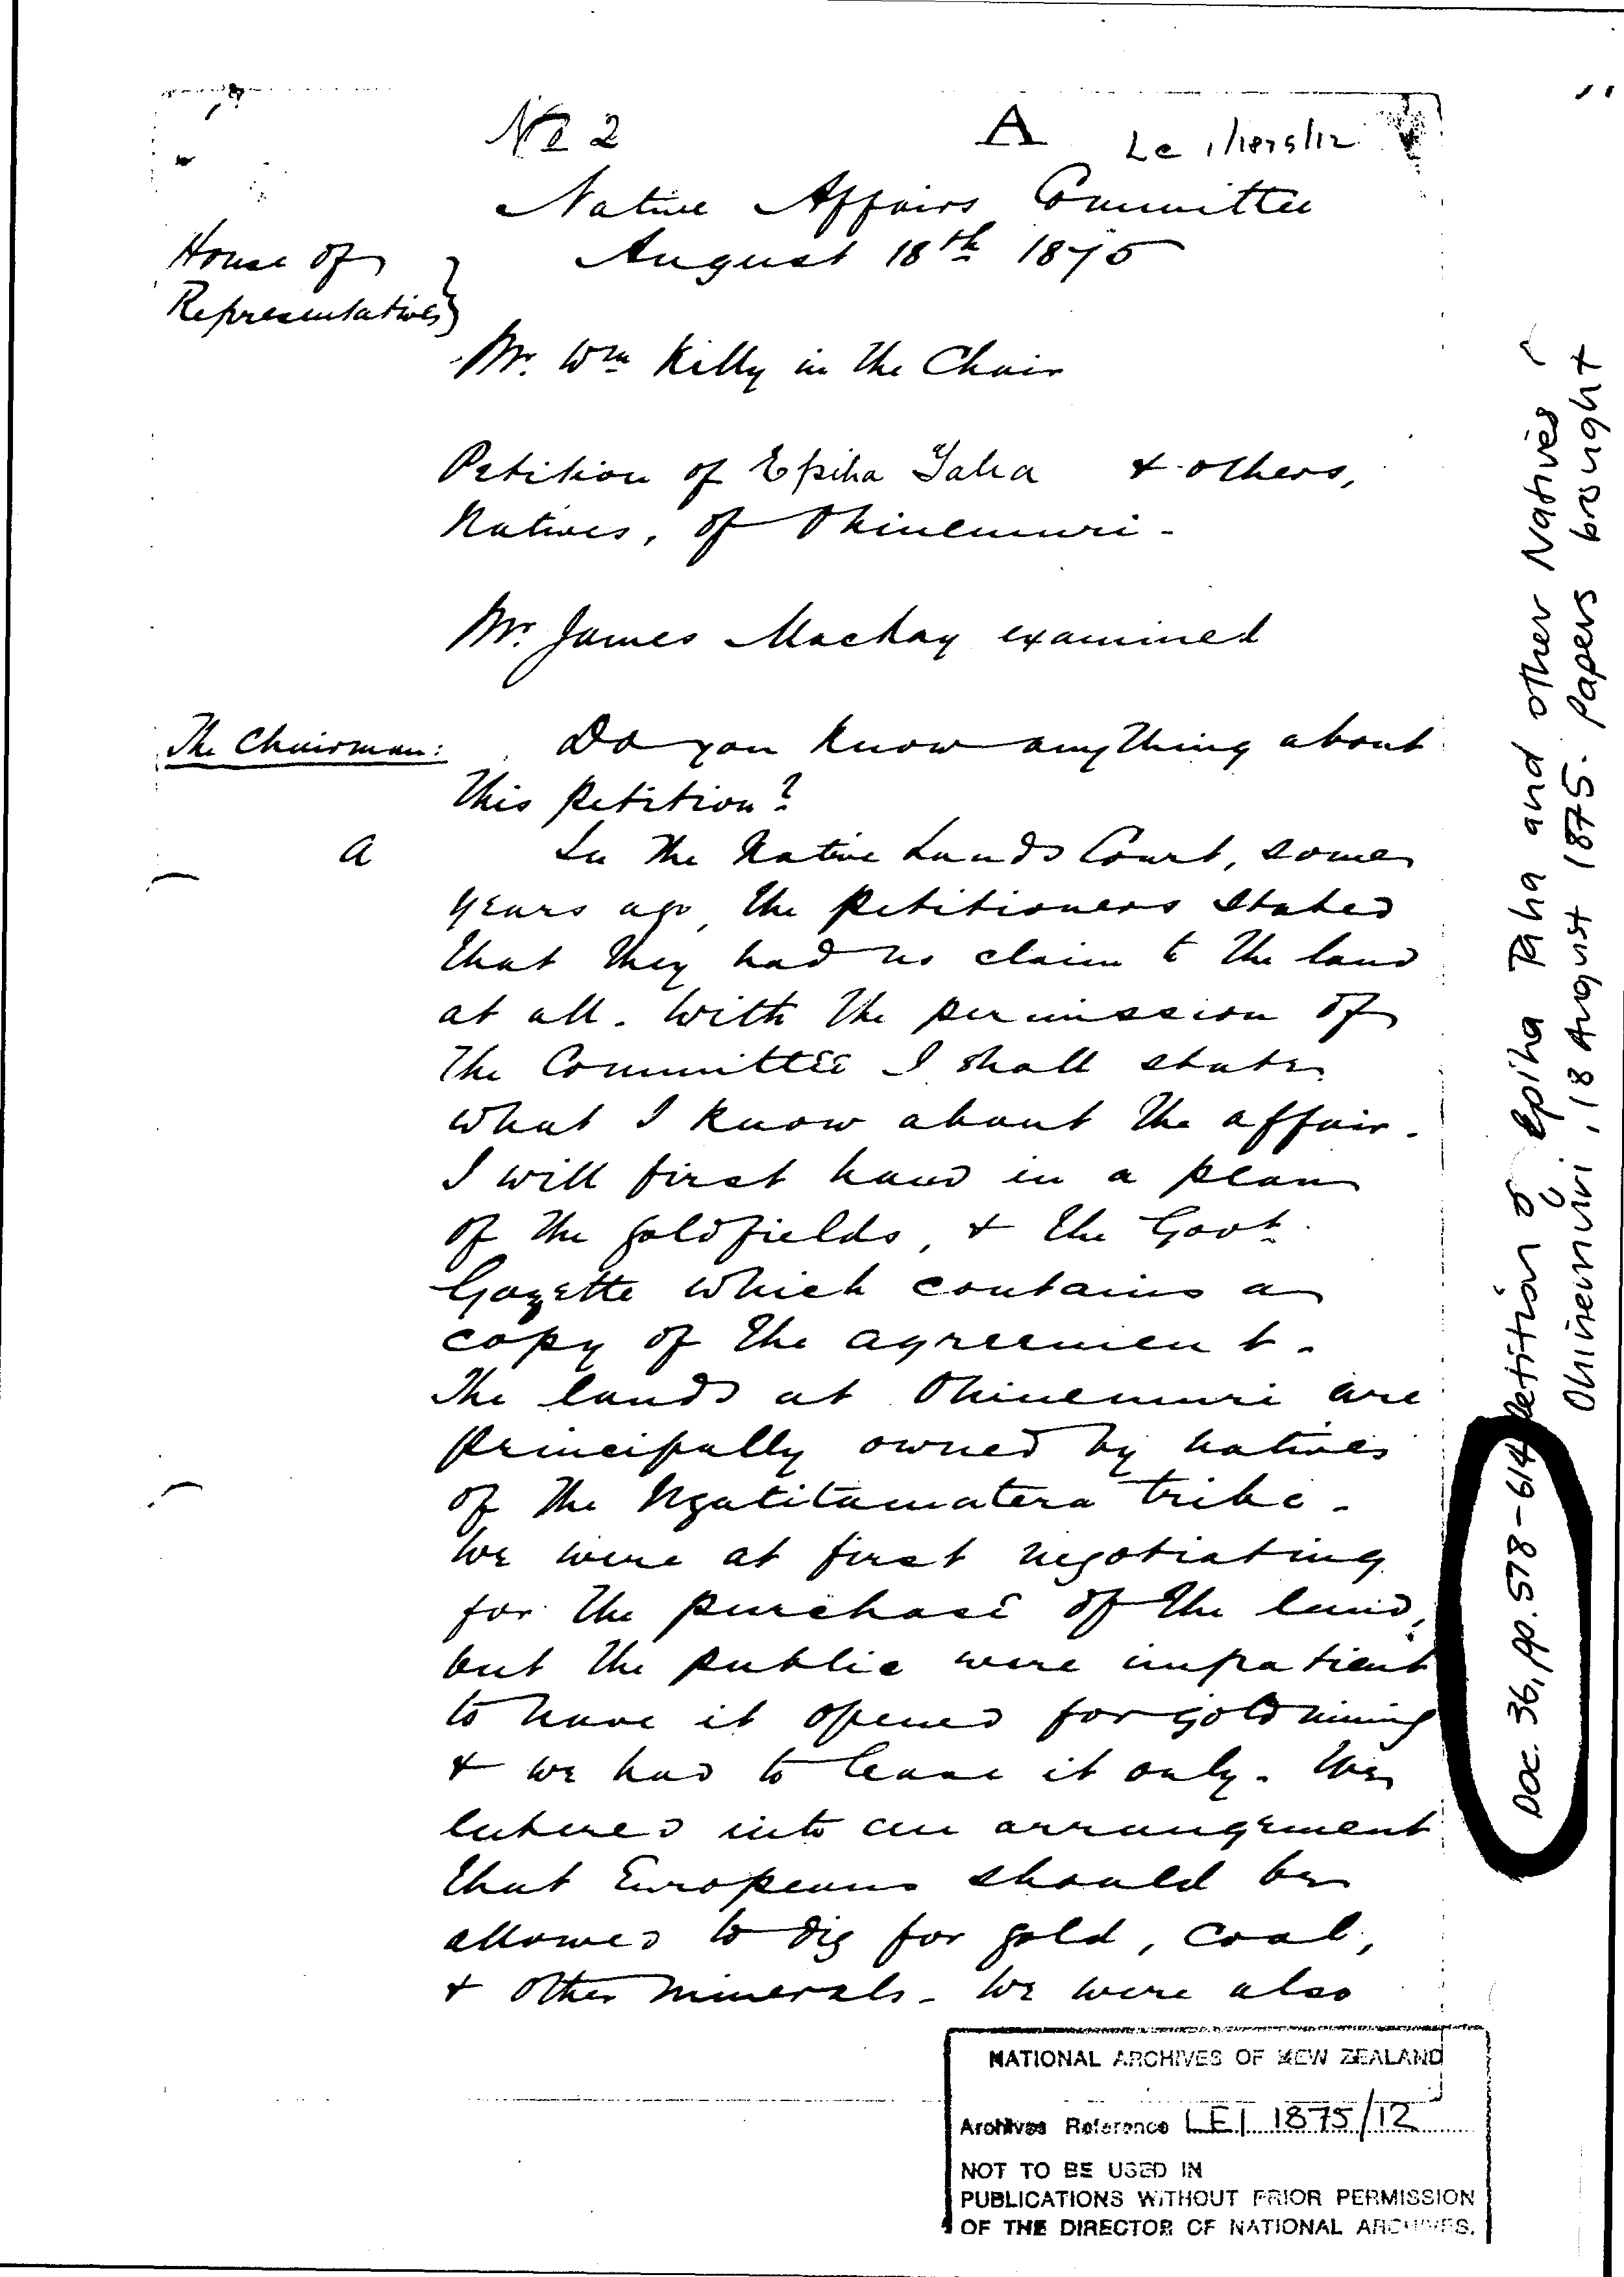 No 2
A
Le 1/1875/12
Native Affairs Committee
House of
Representatives}
August 18th 1875
Mr. Wm Kelly in the Chair
Petition of Epiha Taha & others,
Natives, of Ohinemuri -
Mr. James Mackay examined
The Chairman: Do you know anything about
this petition?
A In the Native Lands Court, some
years ago, the petitioners stated
that they had no claim to the land
at all. With the permission of
the Committee I shall state
what I know about the affair.
I will first hand in a plan
of the goldfields, & the Govt.
Gazette which contains a
copy of the agreement.
The lands at Ohinemuri are
principally owned by natives
of the Ngatitamatera tribe.
We were at first negotiating
for the purchase of the land,
but the public were impatient
to have it opened for goldmining
& we had to lease it only. We
entered into an arrangement
that Europeans should be
allowed to dig for gold, coal,
& other minerals. We were also
NATIONAL ARCHIVES OF NEW ZEALAND
Archives Reference LE1 1875/12
NOT TO BE USED IN
PUBLICATIONS WITHOUT PRIOR PERMISSION
OF THE DIRECTOR OF NATIONAL ARCHIVES.
Doc. 36, pp. 578-614 Petition of Epiha Taha and other Natives
Ohinemuri, 18 August 1875. Papers brought